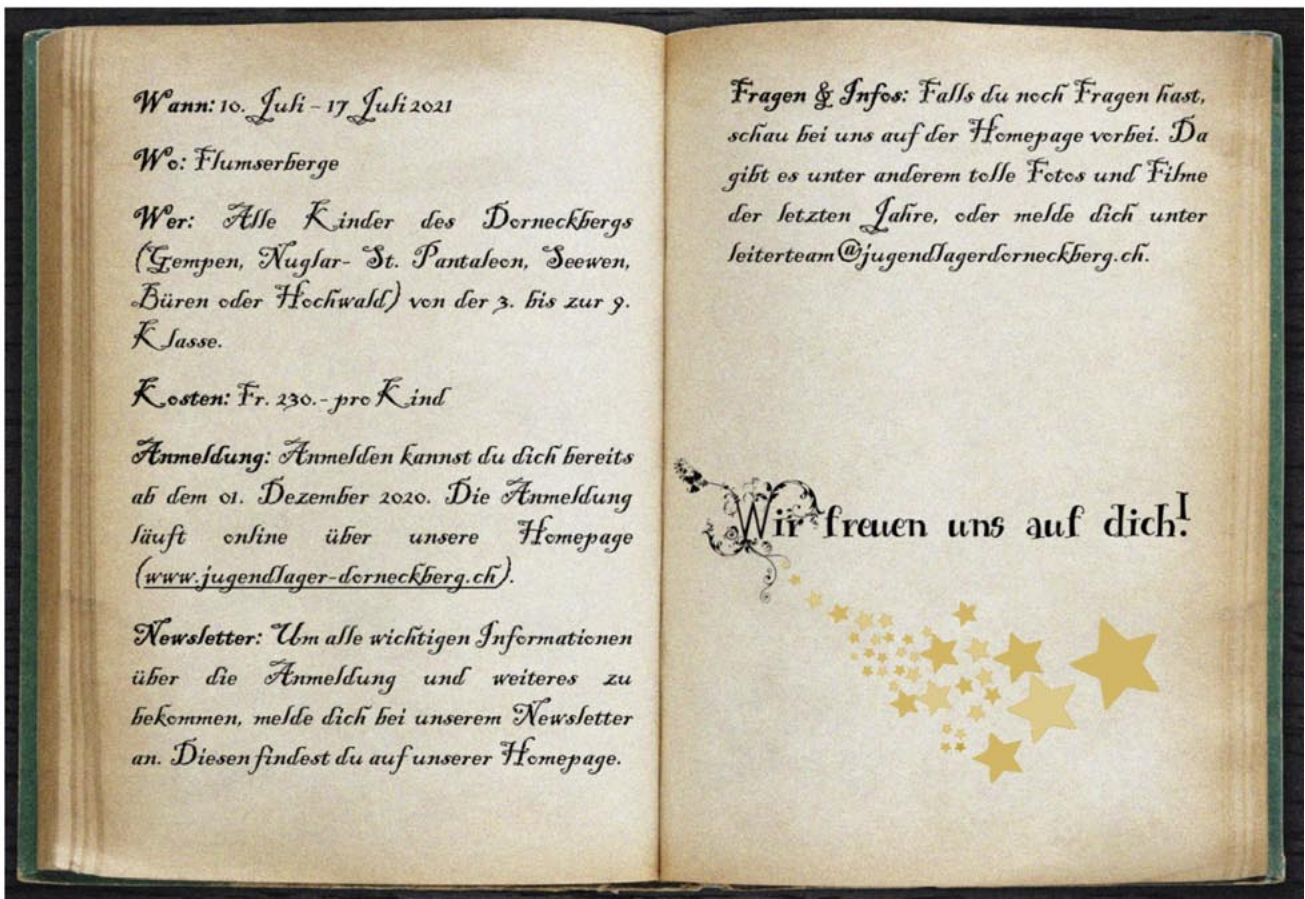 Wann: 10. Juli – 17 Juli 2021
Wo: Flumserberge
Wer: Alle Kinder des Dorneckbergs
(Gempen, Nuglar- St. Pantaleon, Seewen,
Büren oder Hochwald) von der 3. bis zur 9.
Klasse.
Kosten: Fr. 230.- pro Kind
Anmeldung: Anmelden kannst du dich bereits
ab dem 01. Dezember 2020. Die Anmeldung
läuft online über unsere Homepage
(www.jugendlager-dorneckberg.ch).
Newsletter: Um alle wichtigen Informationen
über die Anmeldung und weiteres zu
bekommen, melde dich bei unserem Newsletter
an. Diesen findest du auf unserer Homepage.
Fragen & Infos: Falls du noch Fragen hast,
schau bei uns auf der Homepage vorbei. Da
gibt es unter anderem tolle Fotos und Filme
der letzten Jahre, oder melde dich unter
leiterteam@jugendlagerdorneckberg.ch.
Wir freuen uns auf dich!